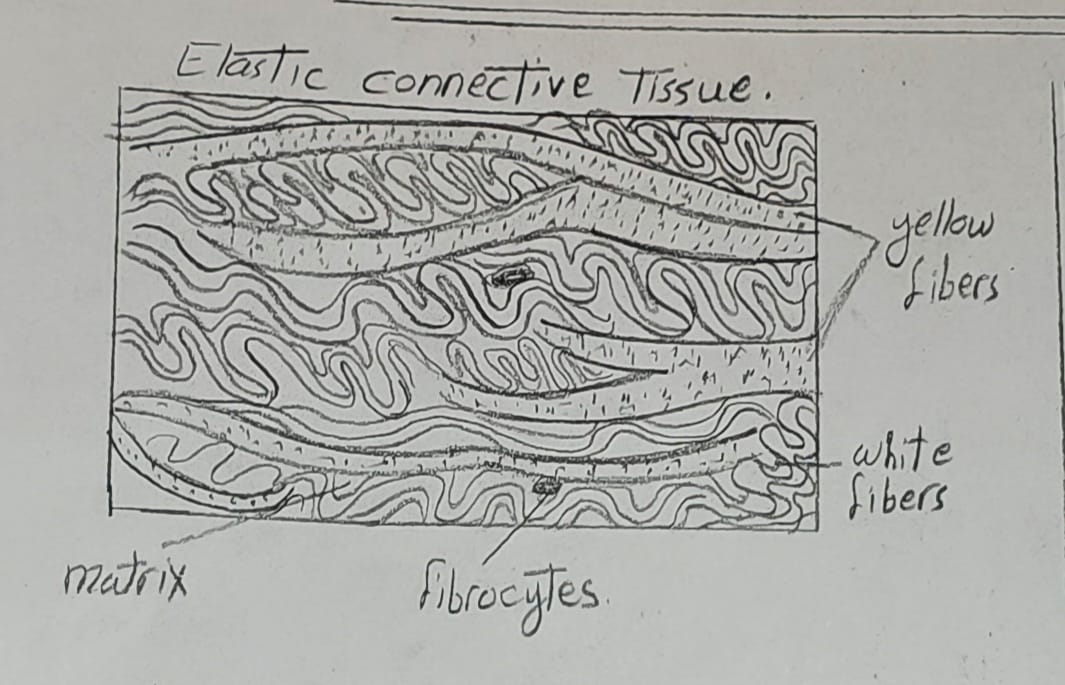 Elastic connective Tissue.
yellow
fibers
white
fibers
matrix
fibrocytes.